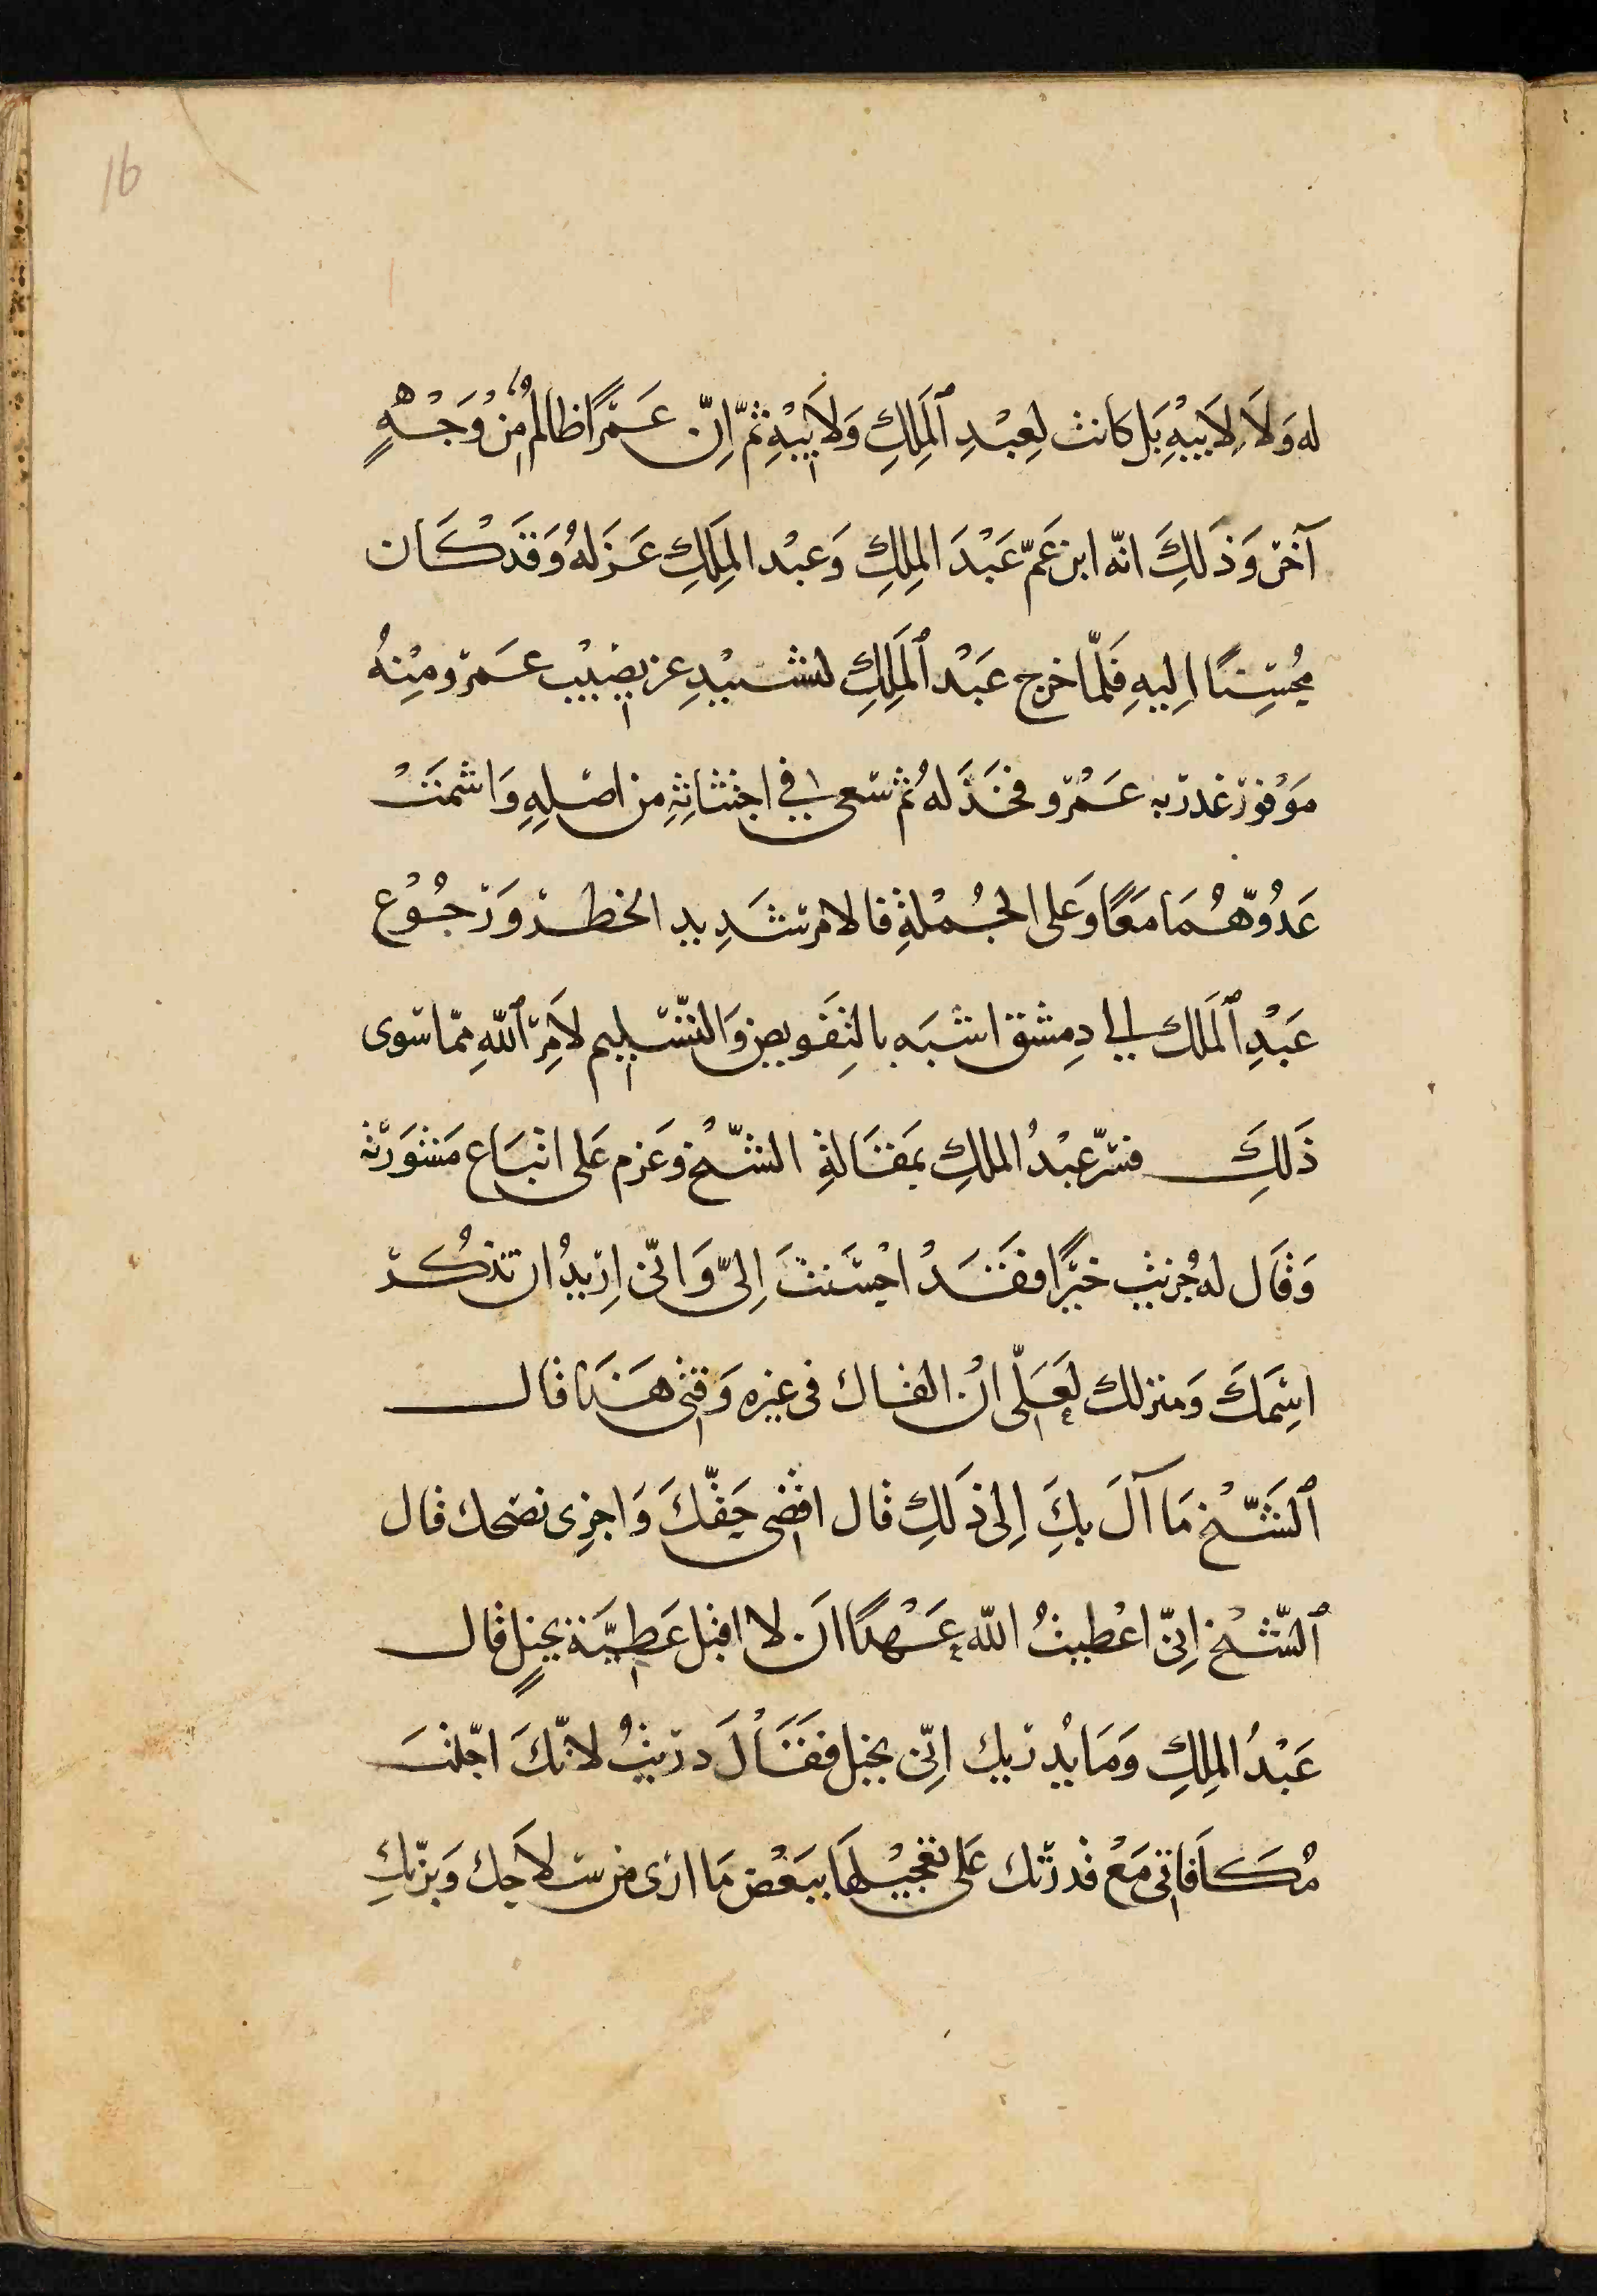 16
له وَلَا لِاَبِيْهِ بَل كانت لِعَبْدِ ٱلْمَلِكِ وَلَابيْهِ ثمّ اِنّ عَمْرًا ظالمٌ مِنْ وَجْهٍ
آخرَ وَذَلِكَ انّه ابن عَمّ عَبْدَ الملِكِ وَعبْد المَلِكِ عَزَلهُ وَقَدْ كَان
مُحْسِنًا اِليهِ فَلمّا خرج عَبْد ٱلْمَلِكِ لسَبيْدِ عن نصِيْب عَمْرو منهُ
مَوْفور غدر به عَمْرو فخذَلهُ ثم سَعى في اجتثاثِهِ من اصْلِهِ وَاشمَتْ
عَدُوّهُمَا مَعًا وَعَلى الجُمْلةِ فالامر شَدِيد الخطر وَرُجُوْع
عَبْدِ ٱلْمَلك الى دِمشق اشبَه بالتفَويض وَالتّسْليم لاَمِر ٱللّٰهِ ممّا سوى
ذَلِكَ فسّر عبْدُ الملكِ بمَقَالةِ الشّيْخ وَعَزم عَلى اتباع مَشوَرته
وَقَال له جُزيت خيرًا فقَدْ احْسَنتَ اِلىّ وَانّى اُرِيدُ ان تذكُر
اسْمَكَ وَمنزلك لعَلّى انْ القاك فى غيره وَقتى هَذا قال
ٱلشَيّْخ مَا آلَ بكَ اِلى ذَلِكِ قال اقضى حَقّكَ وَاجزى نصحك قال
ٱلشّيْخ اِنّى اعْطيتُ اللّٰه عَهْدًا اَن لا اقبل عَطيّةَ بخيلٍ قال
عَبْدُ الملِكِ وَمَا يُدريك اِنّى بخيل فقَالَ دريتُ لانّكَ اجّلتَ
مُكَافاتى مَعْ قدرتك عَلى تعْجيْلهَا ببَعْض مَا ارَى من سلاَحِك وَبزّتكِ